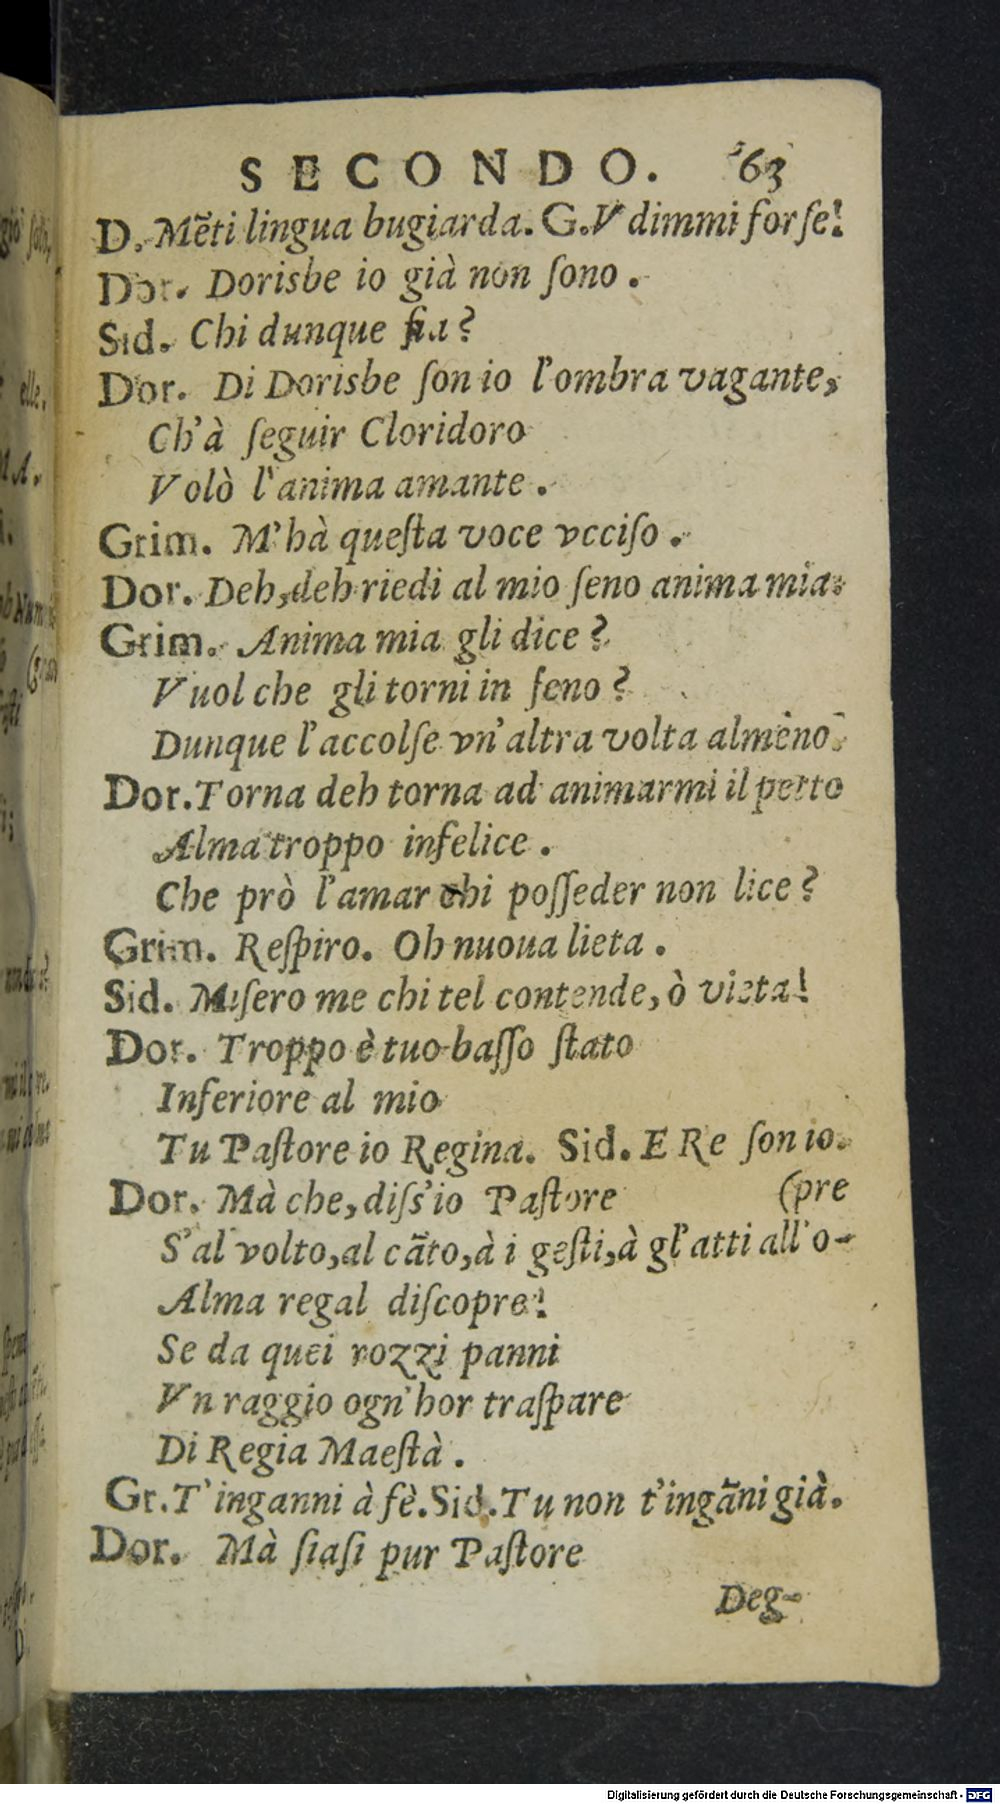 SECONDO. 63
D. Mẽti lingua bugiarda. G. Vdimmi forſe!
Dor. Dorisbe io già non ſono.
Sid. Chi dunque ſia?
Dor. Di Dorisbe ſon io l'ombra vagante,
Ch'à ſeguir Cloridoro
Volò l'anima amante.
Grim. M'hà queſta voce vcciſo.
Dor. Deh, deh riedi al mio ſeno anima mia.
Grim. Anima mia gli dice?
Vuol che gli torni in ſeno?
Dunque l'accolſe vn'altra volta almeno.
Dor. Torna deh torna ad animarmi il petto
Alma troppo infelice.
Che prò l'amar chi poſſeder non lice?
Grim. Reſpiro. Oh nuoua lieta.
Sid. Miſero me chi tel contende, ò vieta!
Dor. Troppo è tuo baſſo ſtato
Inferiore al mio
Tu Paſtore io Regina. Sid. E Re ſon io.
Dor. Mà che, diſs'io Paſtore (pre
S'al volto, al cãto, à i geſti, à gl'atti all'o-
Alma regal diſcopre!
Se da quei rozzi panni
Vn raggio ogn'hor traſpare
Di Regia Maeſtà.
Gr. T'inganni à fè. Sid. Tu non t'ingãni già.
Dor. Mà ſiaſi pur Paſtore
Deg-
Digitalisierung gefördert durch die Deutsche Forschungsgemeinschaft - DFG